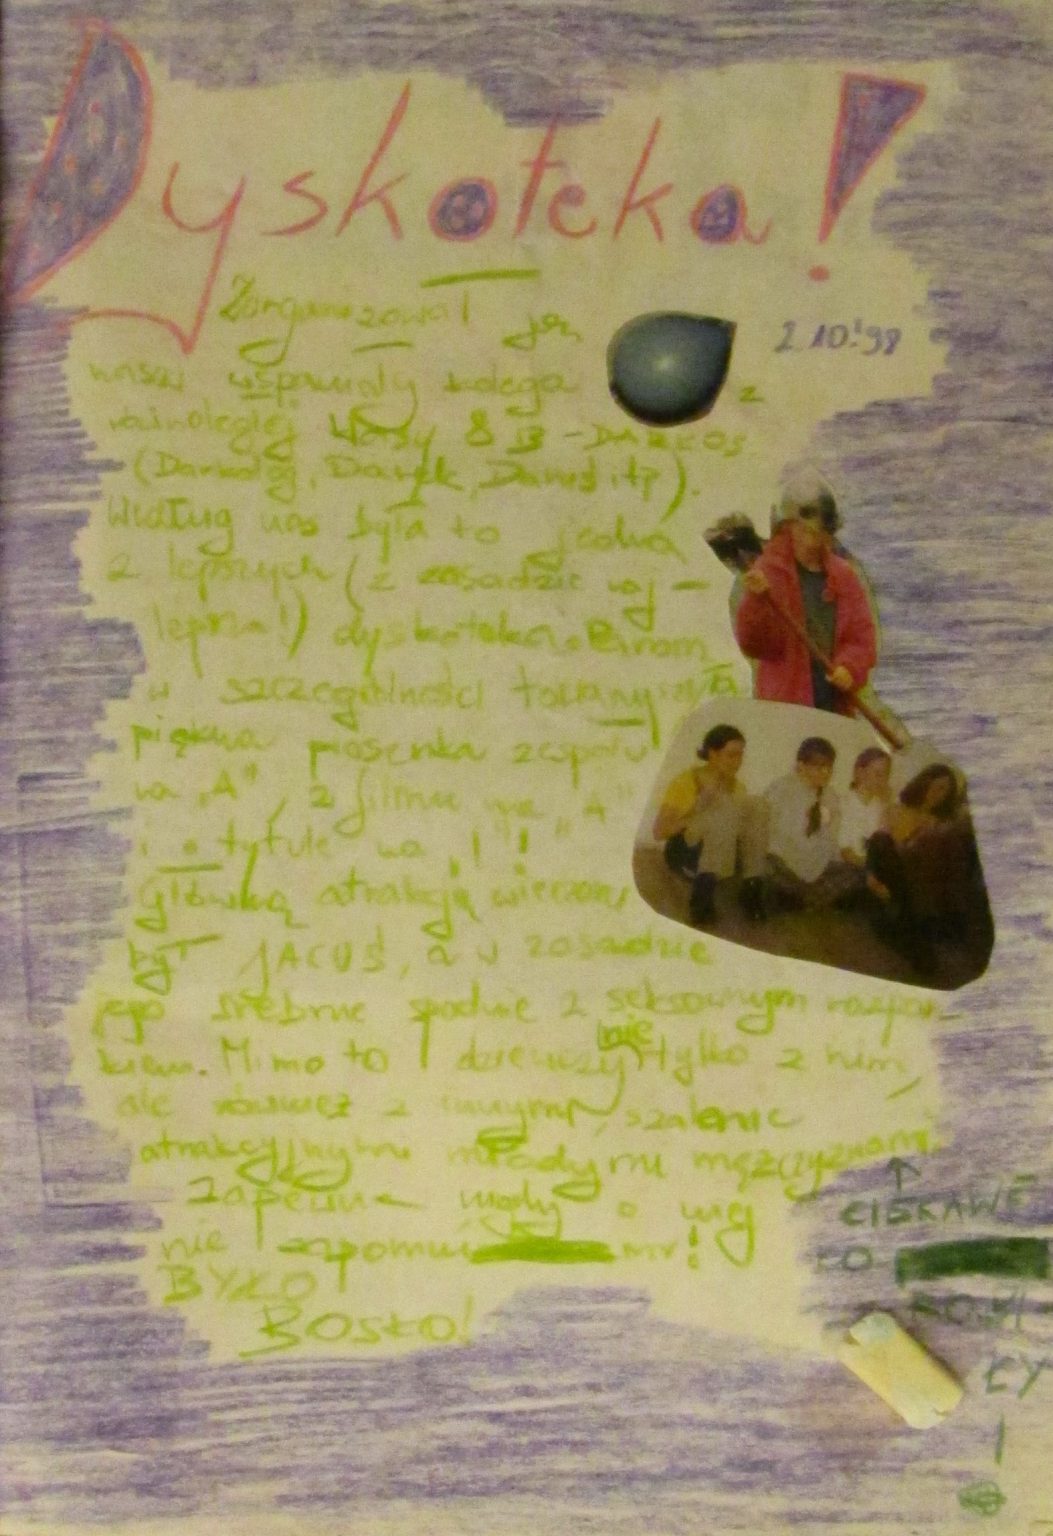 Dyskoteka!
Zorganizował ją
2 10!98
nasz wspaniały kolega z
równoległej klasy 8 B - DARKOS
(Darkoś, Darek, itp).
Według nas była to jedna
z lepszych (z zasadzie naj-
lepsza!) dyskoteka.
w szczególności towarzyszyła
piękna piosenka zespołu
na "A", z filmu na "A"
i o tytule na "I"!
Główną atrakcją wieczoru
był JACUŚ, a w zasadzie
jego srebrne spodnie z seksownym rozpor-
kiem. Mimo to dziewczyny nie tylko z nim,
ale również z innymi, szalenie
atrakcyjnymi młodymi mężczyznami.
Zapewne nigdy o niej
nie zapomni my!
BYŁO
BOSKO!
CIEKAWE
CO
ROBI
ŁY
!